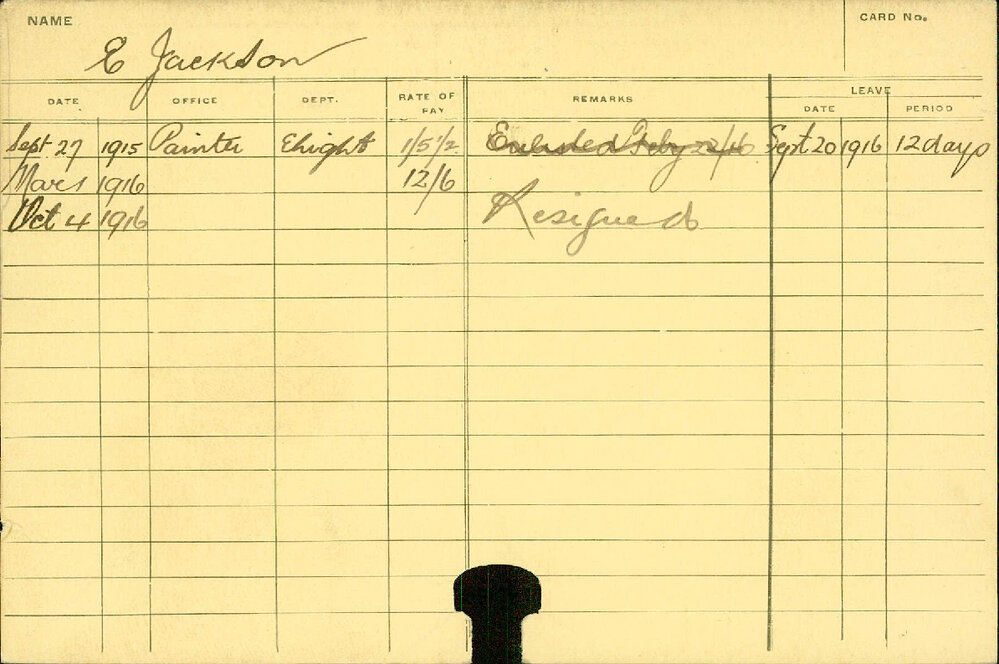 NAME
CARD No.
E Jackson
DATE OFFICE DEPT. RATE OF PAY REMARKS LEAVE
DATE PERIOD
Sept 27 1915 Painter Elright 1/5 1/2 Enlisted Feby 22/16 Sept 20 1916 12 days
Mar 1 1916 12/6
Oct 4 1916 Resigned